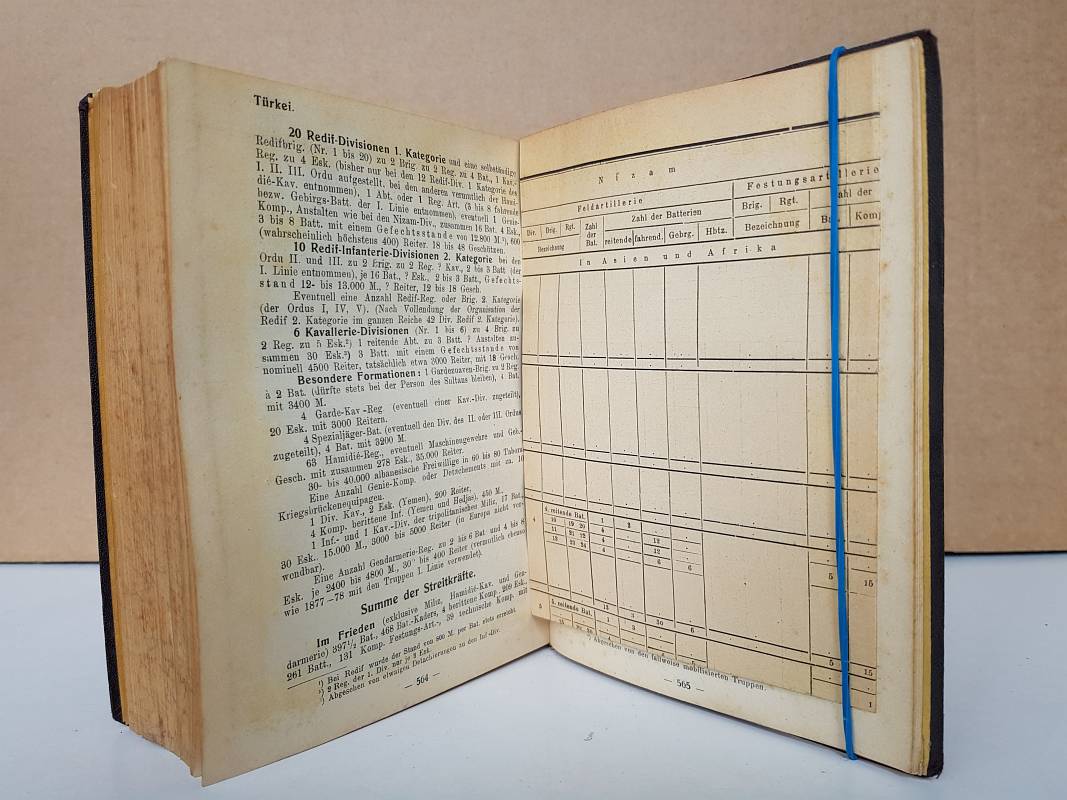 Türkei.
20 Redif-Divisionen 1. Kategorie und eine selbständige
Redifbrig. (Nr. 1 bis 20) zu 2 Brig. zu 2 Reg. zu 4 Bat., 1 Kav.-
Reg. zu 4 Esk. (bisher nur bei den 12 Redif-Div. 1 Kategorie des
I. II. III. Ordu aufgestellt, bei den anderen vermutlich der Hami-
dié-Kav. entnommen), 1 Abt. oder 1 Reg. Art. (3 bis 8 fahrende
bezw. Gebirgs-Batt. der I. Linie entnommen), eventuell 1 Genie-
Komp., Anstalten wie bei den Nizam-Div., zusammen 16 Bat. 4 Esk.,
3 bis 8 Batt. mit einem Gefechtsstande von 12.800 M.¹), 600
(wahrscheinlich höchstens 400) Reiter. 18 bis 48 Geschützen.
10 Redif-Infanterie-Divisionen 2. Kategorie bei den
Ordu II. und III. zu 2 Brig. zu 2 Reg. ? Kav., 2 bis 3 Batt (der
I. Linie entnommen), je 16 Bat., ? Esk., 2 bis 3 Batt., Gefechts-
stand 12- bis 13.000 M., ? Reiter, 12 bis 18 Gesch.
Eventuell eine Anzahl Redif-Reg. oder Brig. 2. Kategorie
(der Ordus I, IV, V). (Nach Vollendung der Organisation der
Redif 2. Kategorie im ganzen Reiche 42 Div. Redif 2. Kategorie).
6 Kavallerie-Divisionen (Nr. 1 bis 6) zu 4 Brig. zu
2 Reg. zu 5 Esk.²) 1 reitende Abt. zu 3 Batt. ? Anstalten zu-
sammen 30 Esk.³) 3 Batt. mit einem Gefechtsstande von
nominell 4500 Reiter, tatsächlich etwa 3000 Reiter, mit 18 Gesch.
Besondere Formationen: 1 Gardezuaven-Brig. zu 2 Reg.
à 2 Bat. (dürfte stets bei der Person des Sultans bleiben), 4 Bat.
mit 3400 M.
4 Garde-Kav-Reg (eventuell einer Kav.-Div. zugeteilt),
20 Esk. mit 3000 Reitern.
4 Spezialjäger-Bat. (eventuell den Div. des II. oder III. Ordus
zugeteilt), 4 Bat. mit 3200 M.
63 Hamidié-Reg., eventuell Maschinengewehre und Geb.-
Gesch. mit zusammen 278 Esk., 35.000 Reiter.
30- bis 40.000 albanesische Freiwillige in 60 bis 80 Tabors
Eine Anzahl Genie-Komp. oder Detachements mit za. 10
Kriegsbrückenequipagen.
1 Div. Kav., 2 Esk. (Yemen), 200 Reiter,
4 Komp. berittene Inf. (Yemen und Hedjas), 450 M.,
1 Inf.- und 1 Kav.-Div. der tripolitanischen Miliz, 17 Bat.,
30 Esk., 15.000 M., 3000 bis 5000 Reiter (in Europa nicht ver-
wendbar).
Eine Anzahl Gendarmerie-Reg. zu 2 bis 6 Bat und 4 bis 8
Esk. je 2400 bis 4800 M., 300 bis 400 Reiter (vermutlich ebenso
wie 1877–78 mit den Truppen I. Linie verwendet).
Summe der Streitkräfte.
Im Frieden (exklusive Miliz, Hamidié-Kav. und Gen-
darmerie) 397½ Bat., 468 Bat.-Kaders, 4 berittene Komp., 209 Esk.,
261 Batt., 131 Komp. Festungs-Art., 39 technische Komp. mit
¹) Bei Redif wurde der Stand von 800 M. per Bat. stets erreicht.
²) 2 Reg. der 1. Div. nur je 3 Esk.
³) Abgesehen von etwaigen Detachierungen zu den Inf-Div.
— 564 —
Nizam
Feldartillerie Festungsartillerie
Div. Brig. Rgt. Zahl der Bat. Zahl der Batterien Brig. Rgt. Zahl der
Bezeichnung reitende fahrend. Gebrg. Hbtz. Bezeichnung Komp
In Asien und Afrika
4 4. reitende Bat. 1 3
10 19 20 4 12
11 21 22 4 12
12 23 24 4 6 6
5 15
13 3 30 6
5 5. reitende Bat. 1 3
5 15
1
¹) Abgesehen von den fallweise mobilisierten Truppen.
— 565 —